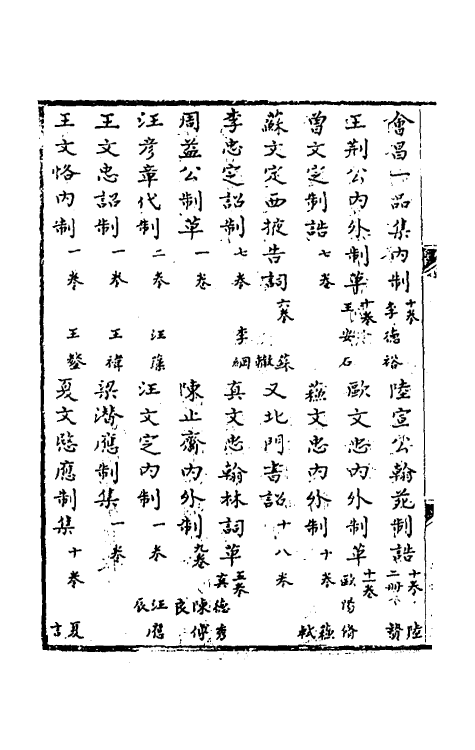 會昌一品集內制十卷李德裕　陸宣公翰苑制誥十卷二冊陸贄
王荊公內外制草十卷王安石　歐文忠內外制草十一卷歐陽脩
曾文定制誥七卷　蘇文忠內外制十卷蘇軾
蘇文定西掖告詞六卷蘇轍　又北門書詔十八卷
李忠定詔制七卷李綱　真文忠翰林詞草五卷真德秀
周益公制草一卷　陳止齋內外制九卷陳傅良
汪彥章代制二卷汪藻　汪文定內制一卷汪應辰
王文忠詔制一卷王禕　梁潛應制集一卷
王文恪內制一卷王鏊　夏文愍應制集十卷夏言